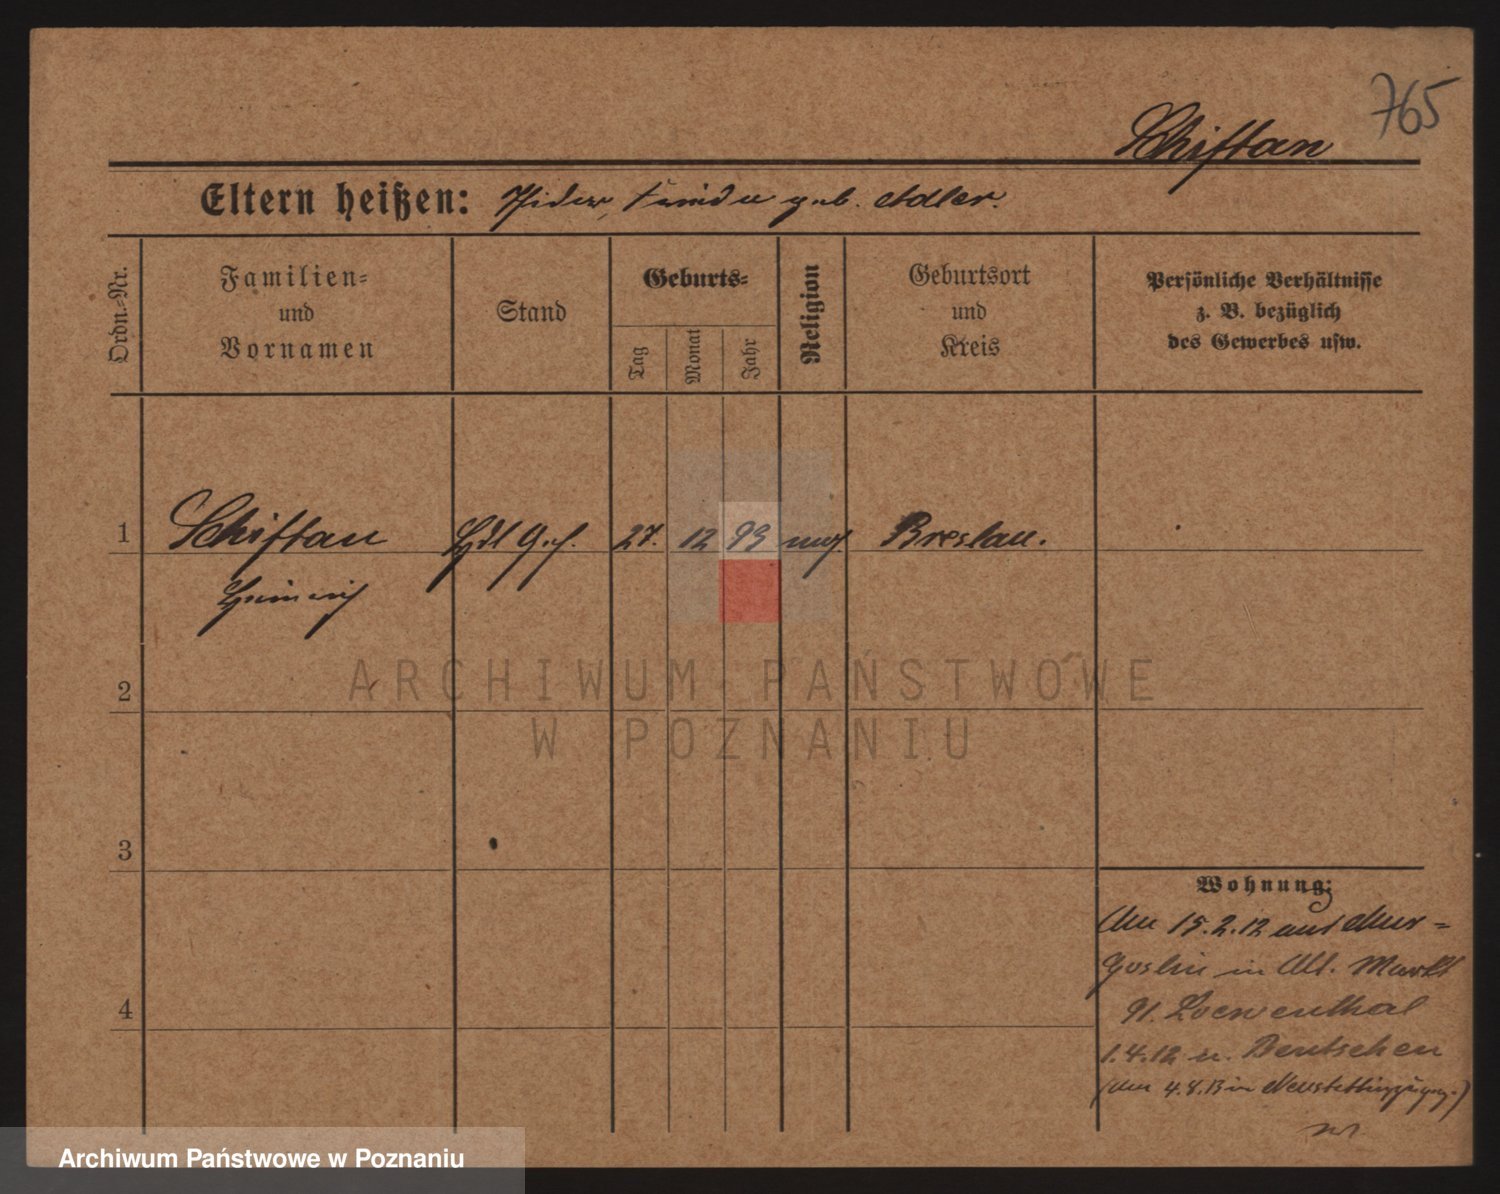 765
Schiftan
Eltern heißen: geb. Adler.
Ordn.-Nr.
Familien-
und
Vornamen
Stand
Geburts-
Tag
Monat
Jahr
Religion
Geburtsort
und
Kreis
Persönliche Verhältnisse
z. B. bezüglich
des Gewerbes usw.
1 Schiftan 27. 12 93 mos Breslau.
Heinrich
2
3
4
Wohnung:
15.2.12 aus Mur-
Goslin in Alt. Markt
91. Loewenthal
1.4.12 n. Bentschen
4.8.13 in Neustettin
ARCHIWUM PAŃSTWOWE
W POZNANIU
Archiwum Państwowe w Poznaniu